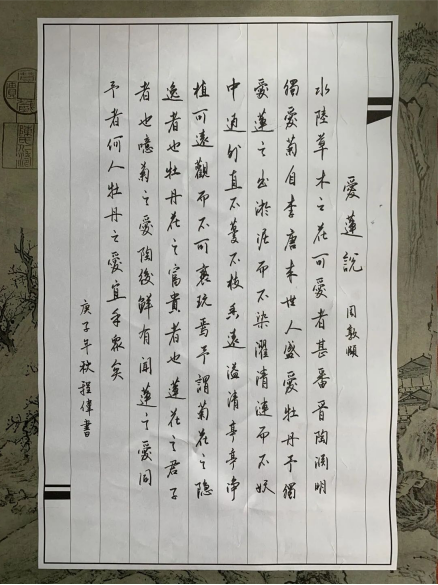 愛蓮說 周敦頤
水陸草木之花可愛者甚番晉陶淵明
獨愛菊自李唐来世人盛愛牡丹予獨
愛蓮之出淤泥而不染濯清漣而不妖
中通外直不蔓不枝香遠溢清亭亭净
植可遠觀而不可褻玩焉予謂菊花之隐
逸者也牡丹花之富貴者也蓮花之君子
者也噫菊之愛陶後鮮有聞蓮之愛同
予者何人牡丹之愛宜乎衆矣
庚子年秋程偉書